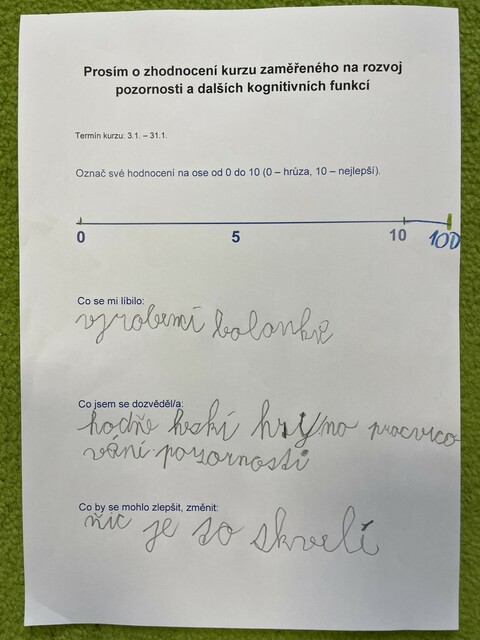 Prosím o zhodnocení kurzu zaměřeného na rozvoj
pozornosti a dalších kognitivních funkcí
Termín kurzu: 3.1. – 31.1.
Označ své hodnocení na ose od 0 do 10 (0 – hrůza, 10 – nejlepší).
0 5 10 100
Co se mi líbilo:
vyrobení balonkě
Co jsem se dozvěděl/a:
hodňe heskí hry na procvico
vání pozornosti
Co by se mohlo zlepšit, změnit:
ňic je to skvelí